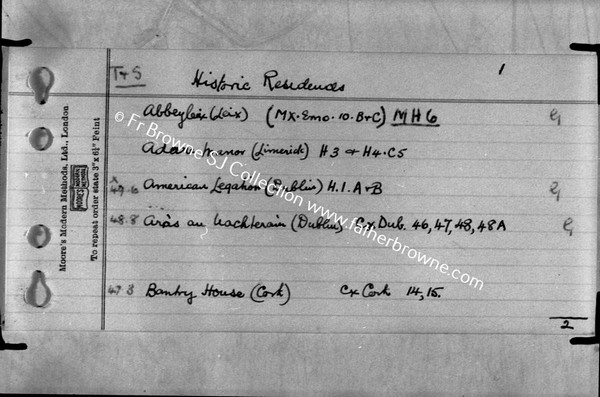 T+S
1
Historic Residences
Abbeyleix (Leix) (MX. Emo. 10. B+C) MH6
Adare Manor (Limerick) H3 + H4. C5
American Legation (Dublin) H.1. A+B
48.8 Aras an Uachterain (Dublin) Cx Dub. 46, 47, 48, 48A
47.8 Bantry House (Cork) Cx Cork 14, 15.
2
Moore's Modern Methods, Ltd., London
To repeat order state 3" x 6½" Feint
© Fr Browne SJ Collection www.fatherbrowne.com